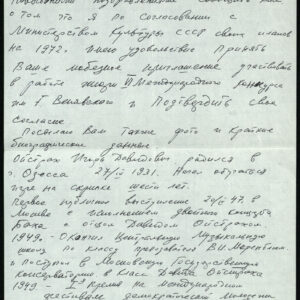 о том что я по согласовании с
Министерством Культуры СССР своих планов
на 1972. имею удовольствие принять
Ваше любезное приглашение участвовать
в работе жюри VI Международного Конкурса
им. Г. Венявского и подтвердить свое
согласие
Посылаю Вам также фото и краткие
биографические данные
Ойстрах Игорь Давидович родился в
г. Одесса 27/IV 1931. Начал обучаться
игре на скрипке шести лет.
Первое публичное выступление 24/ 47. в
Москве с исполнением двойного концерта
Баха, с отцом Давидом Ойстрахом
1949 - Окончил Центральную Музыкальную
школу по классу профессора В.И. Меремблюм
и поступил в Московскую Государственную
Консерваторию в класс Давида Ойстраха
1949 - Iая премия на международном
фестивале демократической молодежи